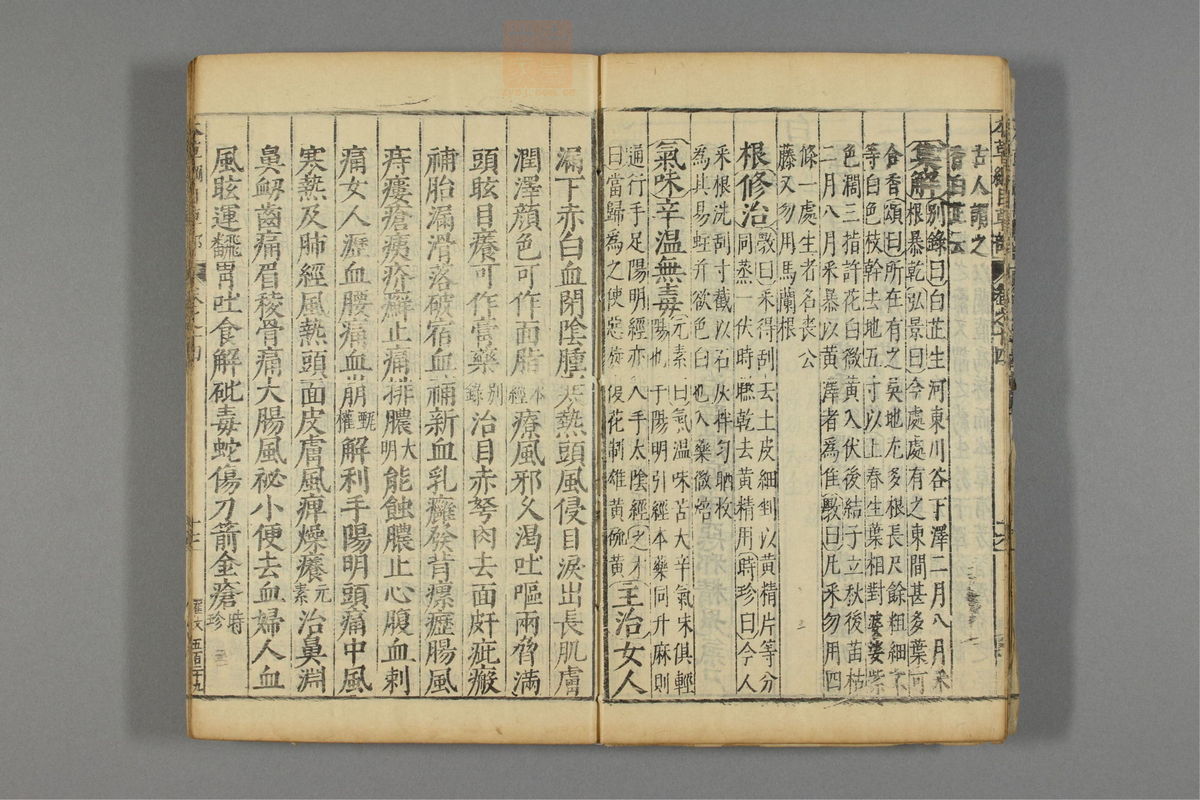 古人謂之
香白芷云
集解別錄曰白芷生河東川谷下澤二月八月采
根暴乾弘景曰今處處有之東間甚多葉可
合香頌曰所在有之吳地尤多根長尺餘粗細不
等白色枝幹去地五寸以上春生葉相對婆娑紫
色濶三指許花白微黃入伏後結子立秋後苗枯
二月八月采暴以黃澤者爲佳斅曰凡采勿用四
條一處生者名喪公
藤又勿用馬蘭根
根修治斅曰采得刮去土皮細剉以黃精片等分
同蒸一伏時晒乾去黃精用時珍曰今人
采根洗刮寸截以石灰拌勻晒收
為其易蛀并欲色白也入藥微焙
氣味辛溫無毒元素曰氣溫味苦大辛氣味俱輕
陽也手陽明引經本藥同升麻則
通行手足陽明經亦入手太陰經之才
曰當歸爲之使惡旋復花制雄黃硫黃
主治女人
漏下赤白血閉陰腫寒熱頭風侵目淚出長肌膚
潤澤顏色可作面脂本經療風邪久渴吐嘔兩脅滿
頭眩目癢可作膏藥別錄治目赤努肉去面皯疵瘢
補胎漏滑落破宿血補新血乳癰發背瘰癧腸風
痔瘻瘡痍疥癬止痛排膿大明能蝕膿止心腹血刺
痛女人瀝血腰痛血崩甄權解利手陽明頭痛中風
寒熱及肺經風熱頭面皮膚風痺燥癢元素治鼻淵
鼻衂齒痛眉稜骨痛大腸風祕小便去血婦人血
風眩運翻胃吐食解砒毒蛇傷刀箭金瘡時珍
五百二十九